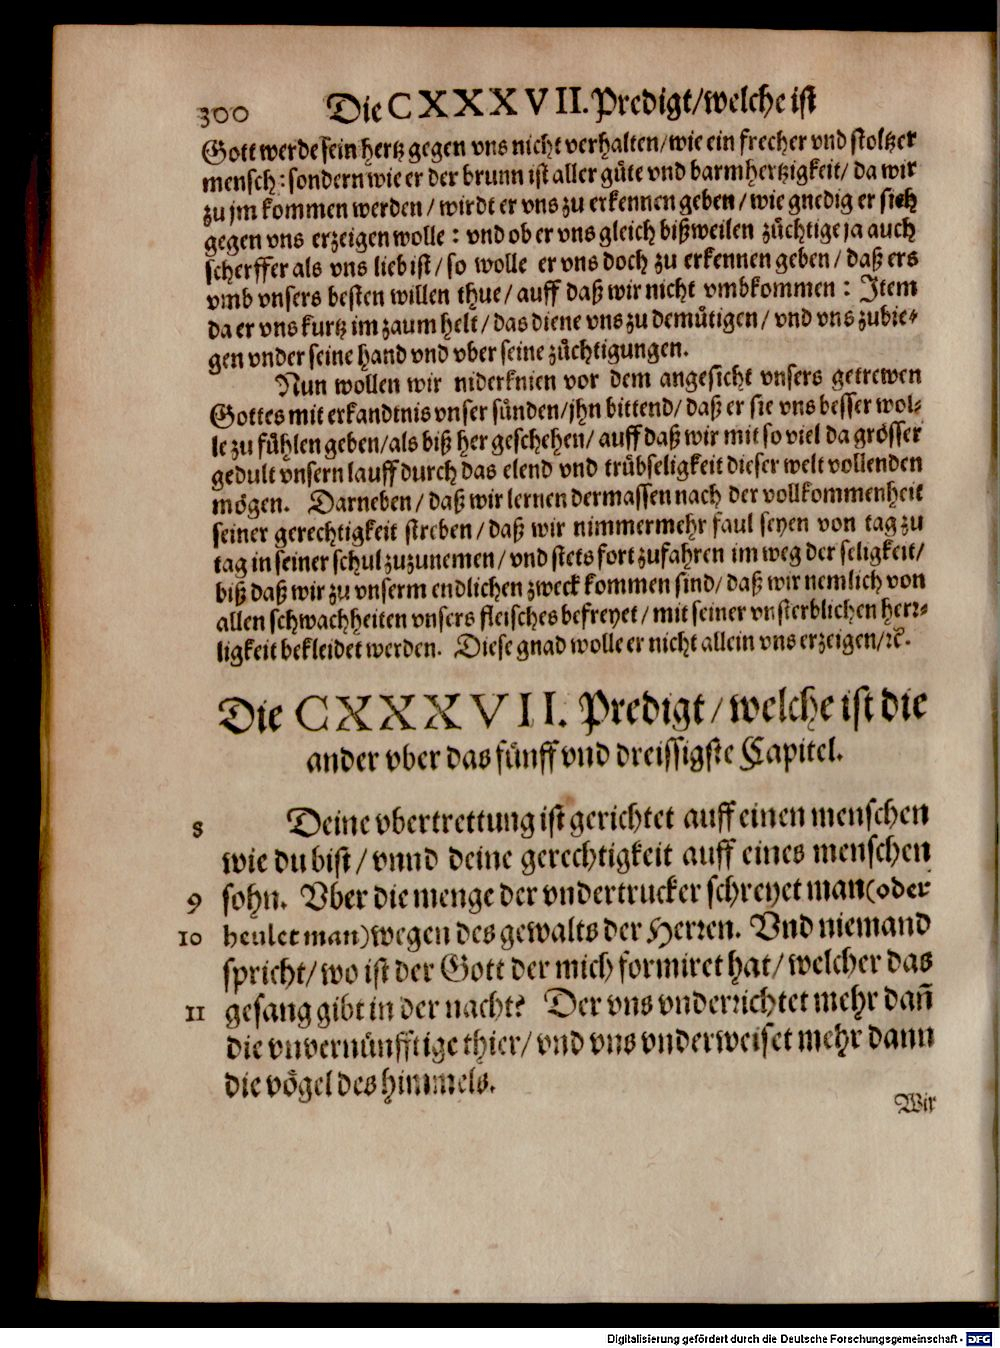 300 Die CXXXVII. Predigt/welche ist
Gott werde sein hertz gegen vns nicht verhalten/wie ein frecher vnd stoltzer
mensch: sondern wie er der brunn ist aller güte vnd barmhertzigkeit/ da wir
zu jm kommen werden / wirdt er vns zu erkennen geben / wie gnedig er sich
gegen vns erzeigen wolle : vnd ob er vns gleich bißweilen züchtige ja auch
scherffer als vns lieb ist/ so wolle er vns doch zu erkennen geben / daß ers
vmb vnsers besten willen thue / auff daß wir nicht vmbkommen : Item
da er vns kurtz im zaum helt / das diene vns zu demütigen / vnd vns zubie-
gen vnder seine hand vnd vber seine züchtigungen.
Nun wollen wir niderknien vor dem angesicht vnsers getrewen
Gottes mit erkandtnis vnser sünden/jhn bittend/ daß er sie vns besser wol-
le zu fühlen geben/als biß her geschehen/ auff daß wir mit so viel da grösser
gedult vnsern lauff durch das elend vnd trübseligkeit dieser welt vollenden
mögen. Darneben / daß wir lernen dermassen nach der vollkommenheit
seiner gerechtigkeit streben / daß wir nimmermehr faul seyen von tag zu
tag in seiner schul zuzunemen / vnd stets fort zufahren im weg der seligkeit/
biß daß wir zu vnserm endlichen zweck kommen sind/ daß wir nemlich von
allen schwachheiten vnsers fleisches befreyet / mit seiner vnsterblichen herr-
ligkeit bekleidet werden. Diese gnad wolle er nicht allein vns erzeigen/ꝛc.
Die CXXXVII. Predigt / welche ist die
ander vber das fünff vnd dreissigste Capitel.
8 Deine vbertrettung ist gerichtet auff einen menschen
wie du bist / vnnd deine gerechtigkeit auff eines menschen
9 sohn. Vber die menge der vndertrucker schreyet man(oder
10 heulet man)wegen des gewalts der Herren. Vnd niemand
spricht/ wo ist der Gott der mich formiret hat / welcher das
11 gesang gibt in der nacht? Der vns vnderrichtet mehr dañ
die vnvernünfftige thier / vnd vns vnderweiset mehr dann
die vögel des himmels.
Wir
Digitalisierung gefördert durch die Deutsche Forschungsgemeinschaft - DFG